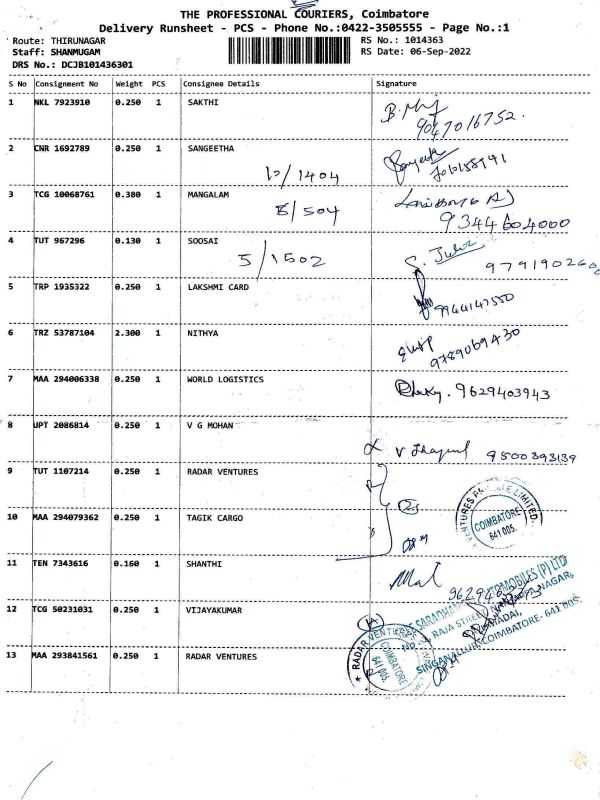 THE PROFESSIONAL COURIERS, Coimbatore
Delivery Runsheet - PCS - Phone No.:0422-3505555 - Page No.:1
Route: THIRUNAGAR RS No.: 1014363
Staff: SHANMUGAM RS Date: 06-Sep-2022
DRS No.: DCJB101436301
S No Consignment No Weight PCS Consignee Details Signature
1 NKL 7923910 0.250 1 SAKTHI
9047016752.
2 CNR 1692789 0.250 1 SANGEETHA
10/1404
3 TCG 10068761 0.380 1 MANGALAM
8/504 9344604000
4 TUT 967296 0.130 1 SOOSAI
5/1502
5 TRP 1935322 0.250 1 LAKSHMI CARD
9944147550
6 TRZ 53787104 2.300 1 NITHYA
9789069430
7 MAA 294006338 0.250 1 WORLD LOGISTICS
9629403943
8 UPT 2086814 0.250 1 V G MOHAN
9500393139
9 TUT 1107214 0.250 1 RADAR VENTURES
VENTURES PRIVATE LIMITED.
COIMBATORE
641 005.
10 MAA 294079362 0.250 1 TAGIK CARGO
11 TEN 7343616 0.160 1 SHANTHI
12 TCG 50231031 0.250 1 VIJAYAKUMAR
AUTOMOBILES (P) LTD
RAJA STREET
SINGANALLUR, COIMBATORE- 641 005.
13 MAA 293841561 0.250 1 RADAR VENTURES
RADAR VENTURES
COIMBATORE
641 005.